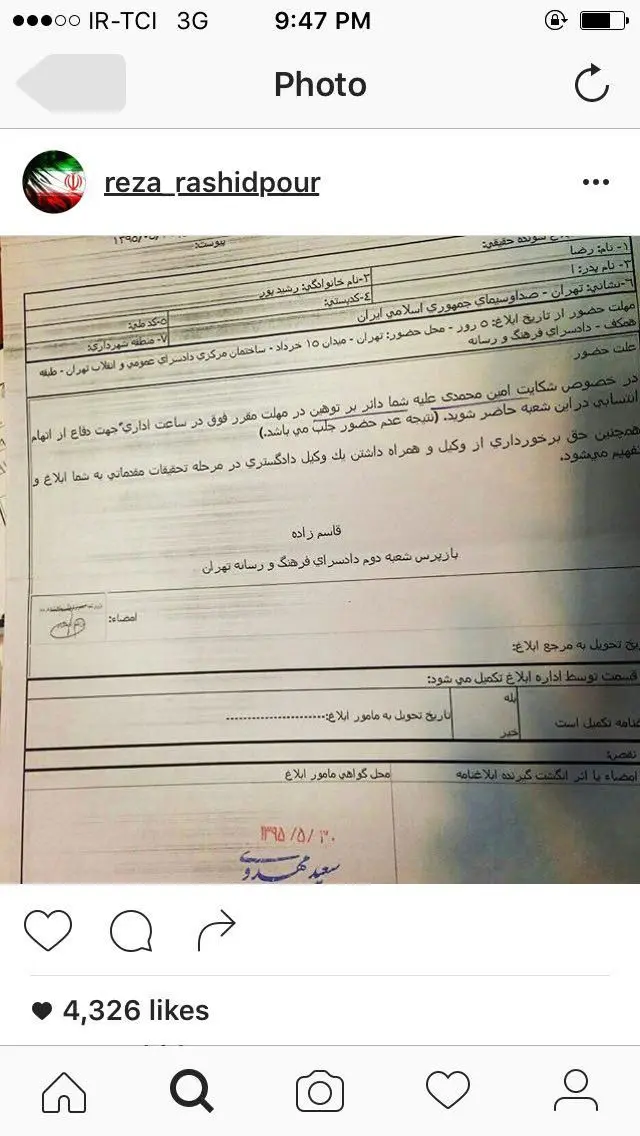 IR-TCI 3G 9:47 PM
Photo
reza_rashidpour
پیوست:
۱- نام: رضا
۲-نام خانوادگي: رشید پور
۳- نام پدر: ا
۴-کدپستي:
۵-کد ملي:
۶-نشاني: تهران - صداوسیماي جمهوري اسلامي ایران
۷- منطقه شهرداري:
مهلت حضور از تاریخ ابلاغ: ۵ روز - محل حضور: تهران - میدان ۱۵ خرداد - ساختمان مرکزي دادسراي عمومي و انقلاب تهران - طبقه
همکف - دادسراي فرهنگ و رسانه
علت حضور
در خصوص شکایت امین محمدي علیه شما دائر بر توهین در مهلت مقرر فوق در ساعت اداري جهت دفاع از اتهام
انتسابي در این شعبه حاضر شوید. (نتیجه عدم حضور جلب مي باشد.)
همچنین حق برخورداري از وکیل و همراه داشتن یك وکیل دادگستري در مرحله تحقیقات مقدماتي به شما ابلاغ و
تفهیم میشود.
قاسم زاده
بازپرس شعبه دوم دادسراي فرهنگ و رسانه تهران
امضاء:
تحویل به مرجع ابلاغ:
قسمت توسط اداره ابلاغ تکمیل مي شود:
تکمیل است
بله
خیر
تاریخ تحویل به مامور ابلاغ:-----------------------
نقص:
امضاء یا اثر انگشت گیرنده ابلاغنامه
محل گواهي مامور ابلاغ
۱۳۹۵/۵/۳۰
سعید مهدوی
4,326 likes